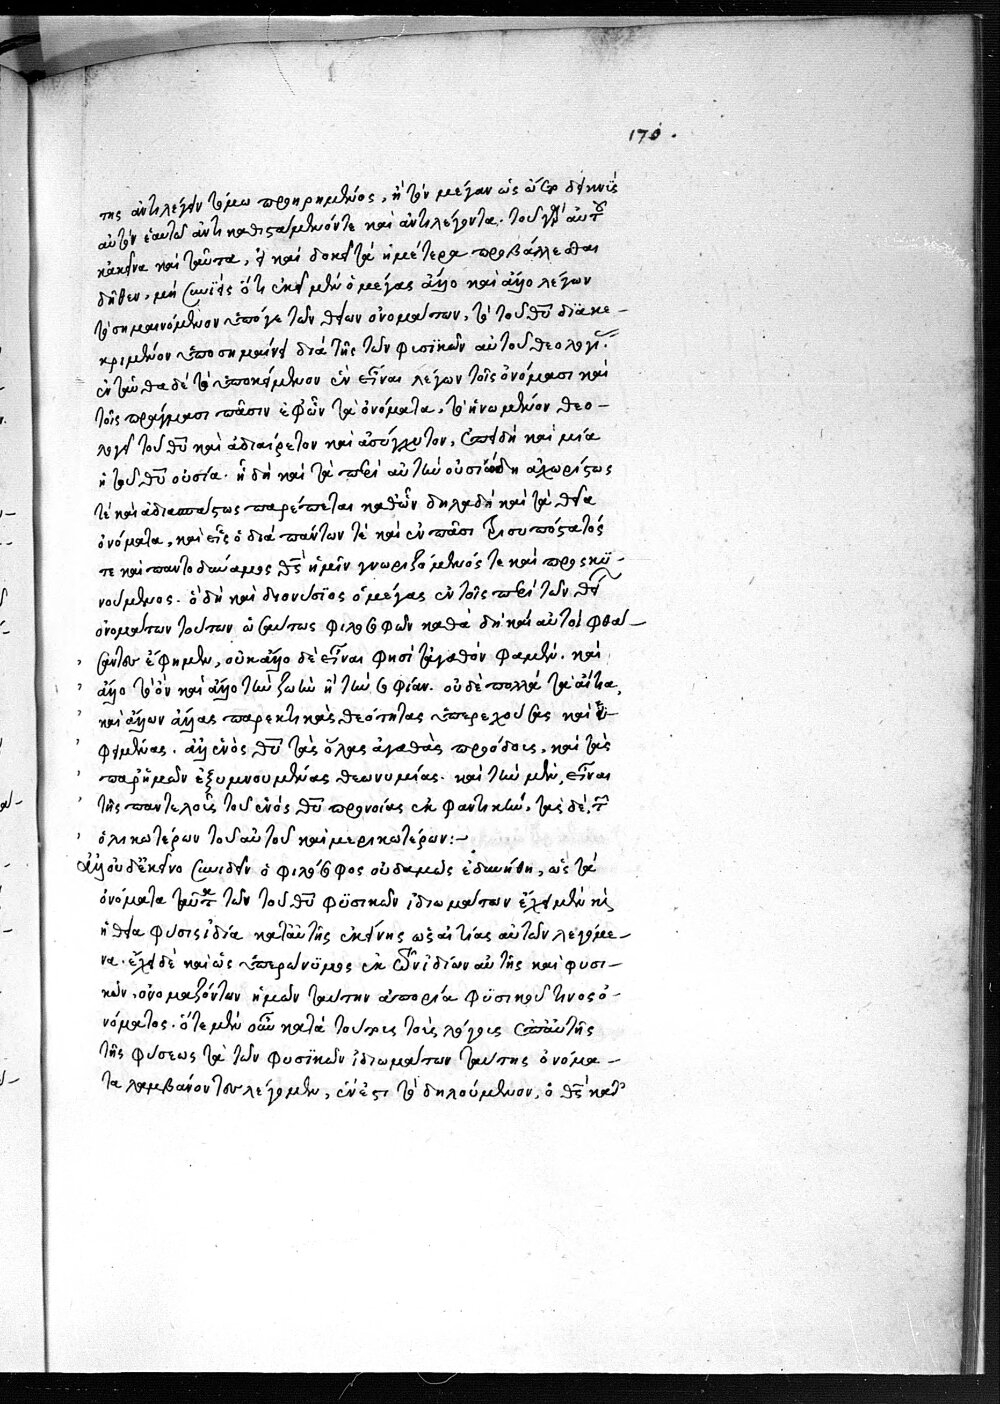 170.
της ἀντιλέγειν τόμω προῃρημένος, ἢ τὸν μέγαν ὡς ὥσπερ
αὐτὸν ἑαυτῶ ἀντικαθιστάμενόν τε καὶ ἀντιλέγοντα.
κἀκεῖνα καὶ ταῦτα, καὶ δοκεῖ τὰ ἡμέτερα προβάλλεσθαι
δῆθεν, μὴ συνϊεὶς ὅτι ἐκεῖ μὲν ὁ μέγας ἄλλο καὶ ἄλλο λέγων
τὸ σημαινόμενον ὑπό γε τῶν θείων ὀνομάτων, τὸ τοῦ θῦ διακε-
κριμένον ὑποσημαίνει διὰ τῆς τῶν φυσϊκῶν αὐτοῦ θεολογί
ἐνταῦθα δὲ τὸ ὑποκείμενον ἓν εἶναι λέγων τοῖς ὀνόμασι καὶ
τοῖς πράγμασι πᾶσιν ἐφ' ὧν τὰ ὀνόματα, τὸ ἡνωμένον θεο-
λογεῖ τοῦ θῦ καὶ ἀδιαίρετον καὶ ἀσύγχυτον, ἐπειδὴ καὶ μία
ἡ τοῦ θῦ οὐσία. ἤδη καὶ τὰ περὶ αὐτὴν οὐσιώδη ἀχωρίστως
τὲ καὶ ἀδιασπάστως παρέπεται καθ' ὧν δηλαδὴ καὶ τὰ θεῖα
ὀνόματα, καὶ εἷς ὁ διὰ πάντων τὲ καὶ ἐν πᾶσι τρισυπόστατός
τε καὶ παντοδύναμος θς ἡμῖν γνωριζόμενός τε καὶ προσκϋ-
νούμενος. ὃ δὴ καὶ διονύσϊος ὁ μέγας ἐν τοῖς περὶ τῶν θεί
ὀνομάτων τούτων ὡσαύτως φιλοσοφῶν καθὰ δὴ καὶ αὐτοὶ φθά-
σαντες ἔφημεν, οὐκ ἄλλο δὲ εἶναι φησὶ τἀγαθὸν φαμέν. καὶ
ἄλλο τὸ ὂν καὶ ἄλλο τὴν ζωὴν ἢ τὴν σοφίαν. οὐδὲ πολλὰ τὰ αἴτια,
καὶ ἄλλων ἄλλας παρεκτικὰς θεότητας ὑπερεχούσας καὶ ὑ-
φειμένας. ἀλλ' ἑνὸς θῦ τὰς ὅλας ἀγαθὰς προόδους, καὶ τὰς
παρ' ἡμῶν ἐξυμνουμένας θεωνυμίας. καὶ τὴν μὲν, εἶναι
τῆς παντελοῦς τοῦ ἑνὸς θῦ προνοίας ἐκφαντικήν, τὰς δὲ, τ
ὁλικωτέρων τοῦ αὐτοῦ καὶ μερικωτέρων:-
ἀλλ' οὐδ' ἐκεῖνο συνιδεῖν ὁ φιλόσοφος οὐδαμῶς ἐδυνήθη, ὡς τὰ
ὀνόματα ταῦτα τῶν τοῦ θῦ φϋσικῶν ἰδιωμάτων ἔχει μὲν κὶς
ἡ θεία φύσις ἰδία κατ' αὐτῆς ἐκείνης ὡς αἰτίας αὐτῶν λεγόμε-
να. ἔχει δὲ καὶ ὡς ὑπερώνϋμος ἐκ τῶν ἰδίων αὐτῆς καὶ φυσι-
κῶν, ὀνομαζόντων ἡμῶν ταύτην ἀπορία φϋσικοῦ τινος ὀ-
νόματος. ὅτε μὲν οὖν κατὰ τούτους τοὺς λόγους ἐπ' αὐτῆς
τῆς φύσεως τὰ τῶν φυσϊκῶν ἰδιωμάτων ταύτης ὀνόμα-
τα λαμβάνοντες λέγομεν, ἕν ἐστι τὸ δηλούμενον, ὁ θς κατ'